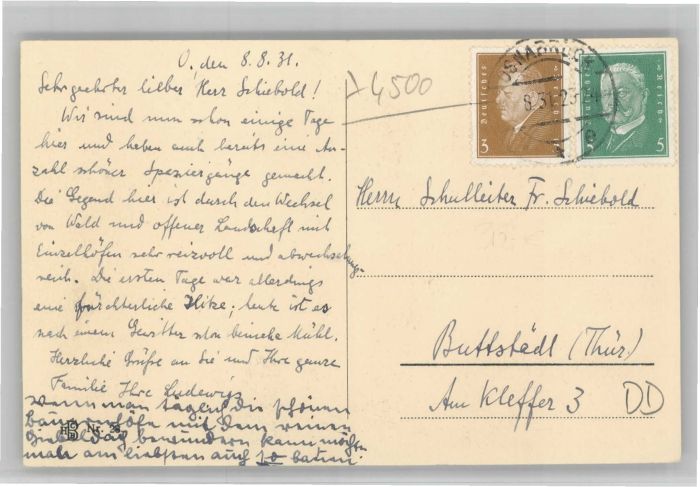 O., den 8.8.31.
Sehr geehrter lieber Herr Schiebold!
Wir sind nun schon einige Tage
hier und haben auch bereits eine An-
zahl schöner Spaziergänge gemacht.
Die Gegend hier ist durch den Wechsel
von Wald und offener Landschaft mit
Einzelhöfen sehr reizvoll und abwechselungs-
reich. Die ersten Tage war allerdings
eine fürchterliche Hitze; heute ist es
nach einem Gewitter schon beinahe kühl.
Herzliche Grüße an Sie und Ihre ganze
Familie Ihre Ludewigs
wenn man tagend die schönen
Bauernhöfe mit dem
bewundern kann möchte
man am liebsten auch so bauen.
Nr.
4500
OSNABRÜCK
8.31.23
Deutsches Reich
3
Deutsches Reich
5
Herrn Schulleiter Fr. Schiebold
Buttstädt (Thür.)
Am Kleffer 3
DD